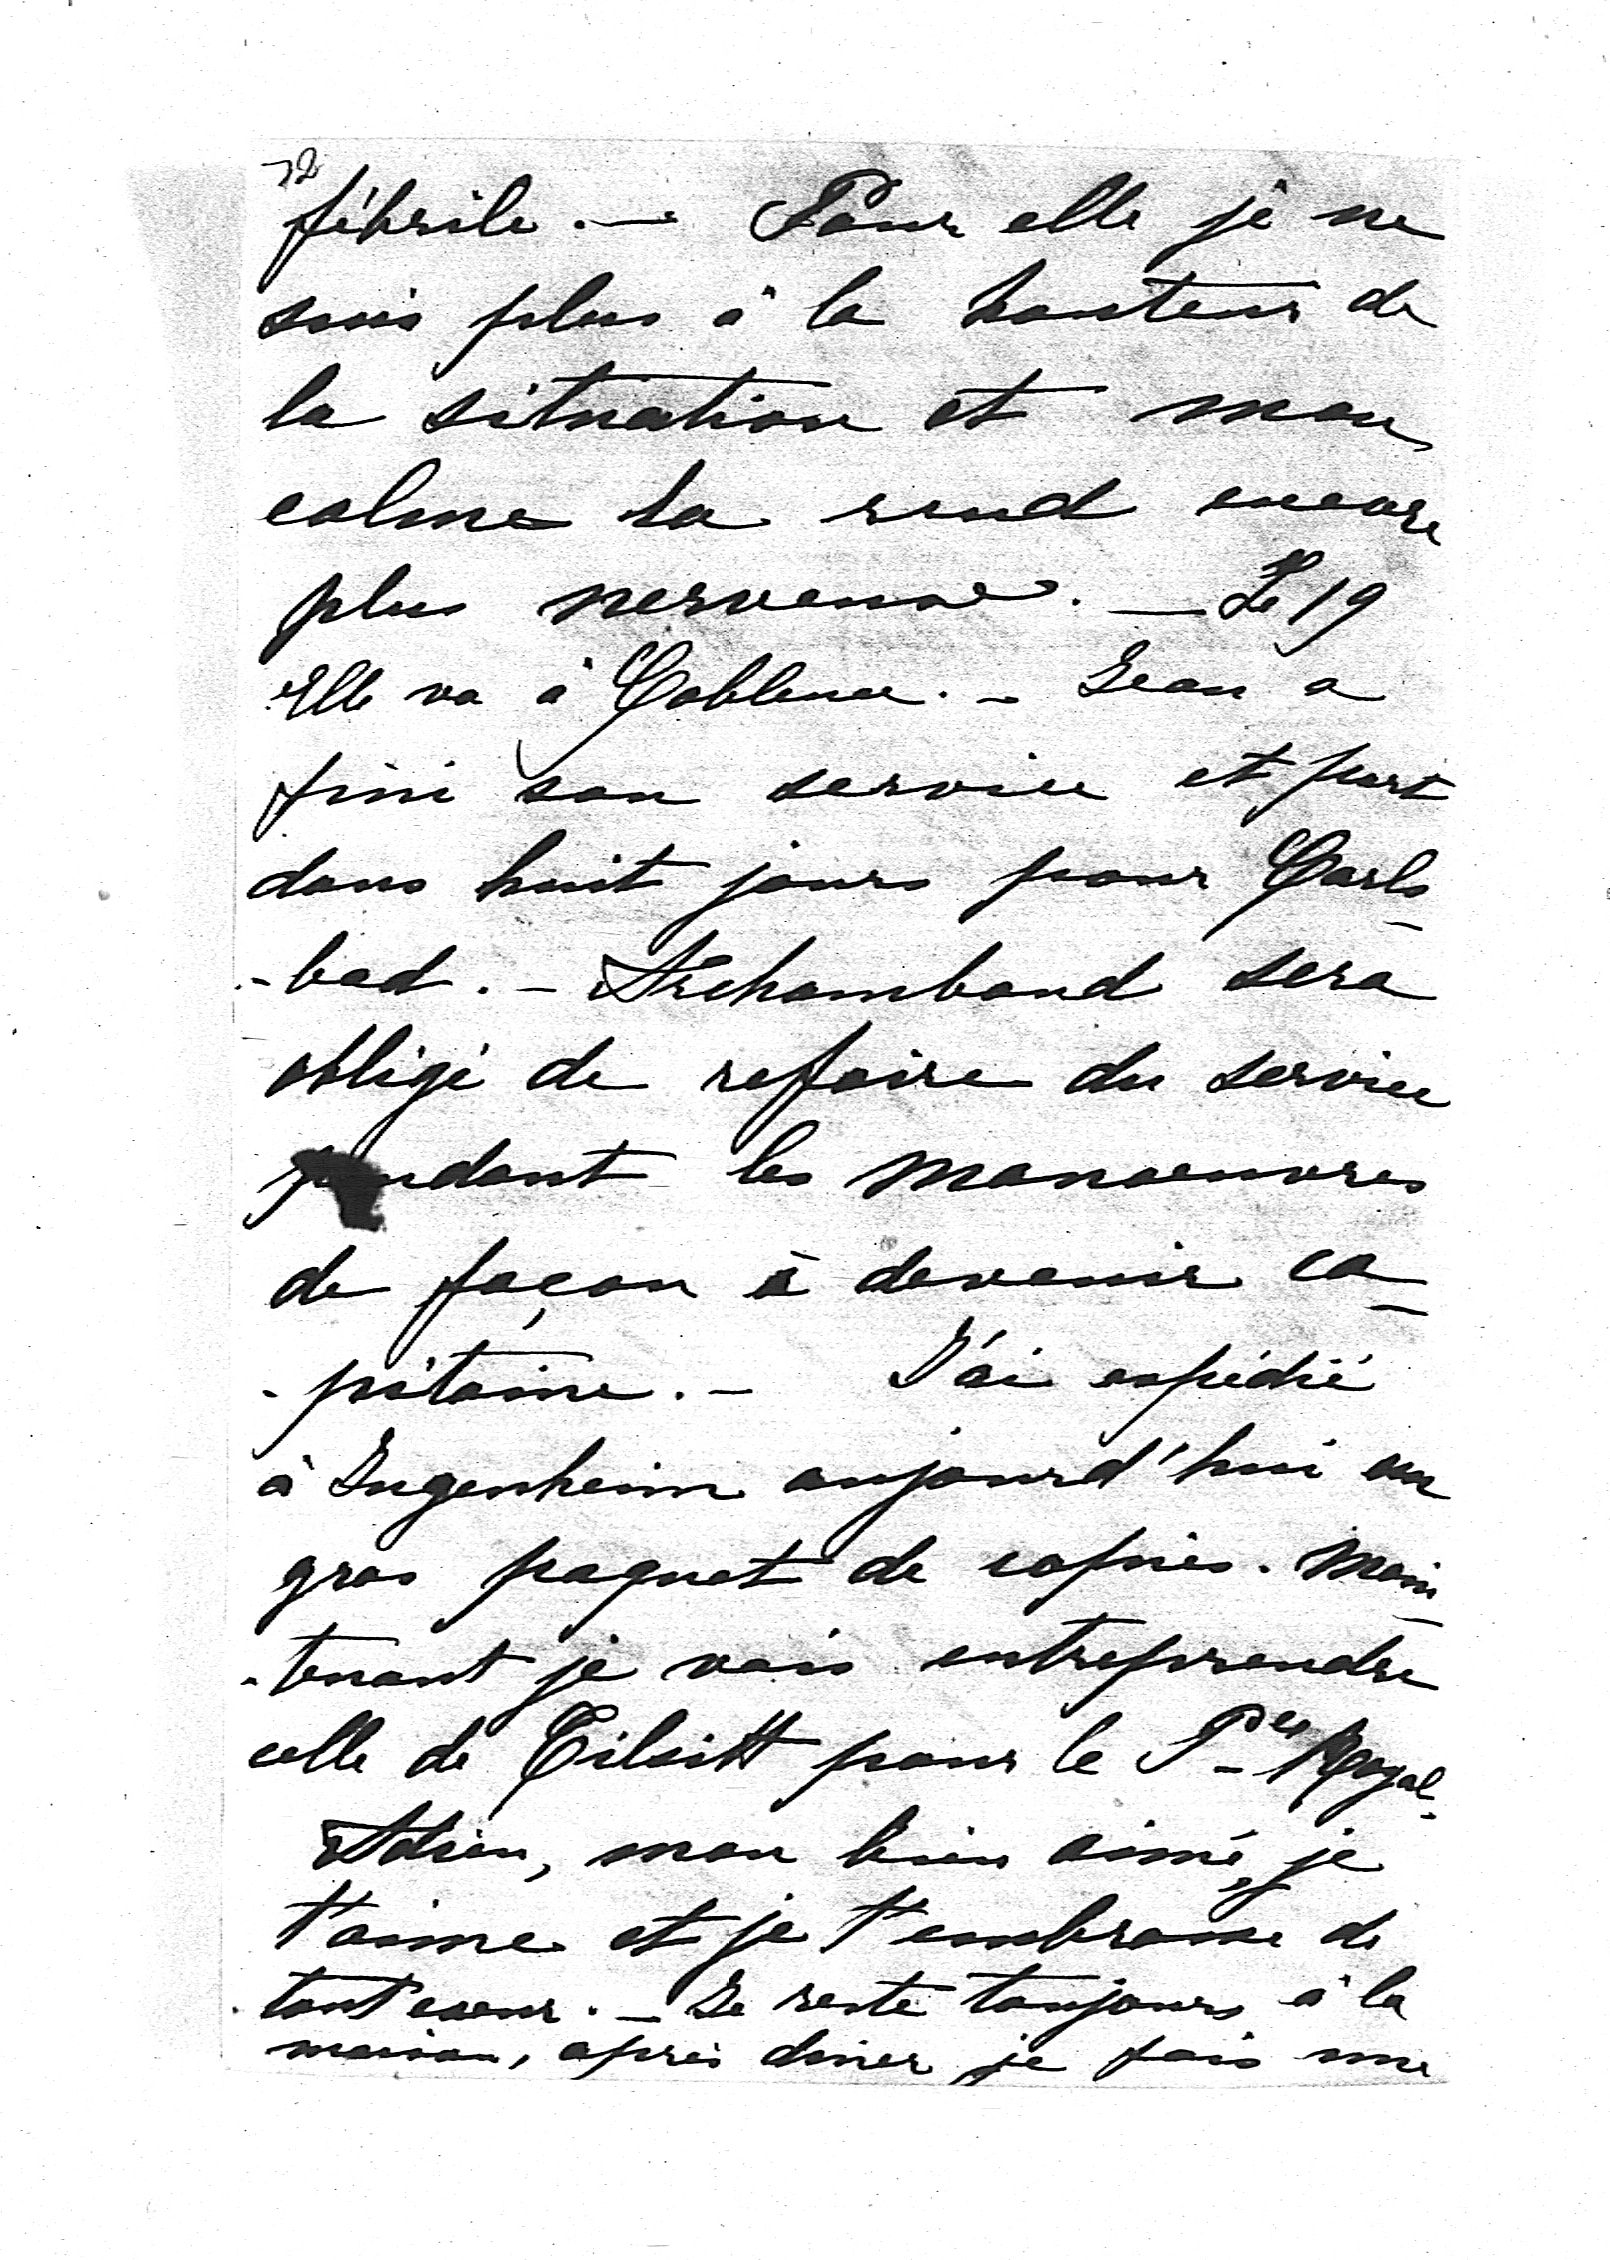 72
fébrile. — Pour elle je ne
suis plus à la hauteur de
la situation et mon
calme la rend encore
plus nerveuse. — Le 19
Elle va à Coblence. — Jean a
fini son service et part
dans huit jours pour Carls-
-bad. — Archambaud sera
obligé de refaire du service
pendant les manoeuvres
de façon à devenir ca-
-pitaine. — J'ai expédié
à Jugenheim aujourd'hui un
gros paquet de copies. Main-
-tenant je vais entreprendre
celle de Tilsitt pour le Pce Royal.
Adieu, mon bien aimé, je
t'aime et je t'embrasse de
tout coeur. — Je reste toujours à la
maison, après diner je fais une